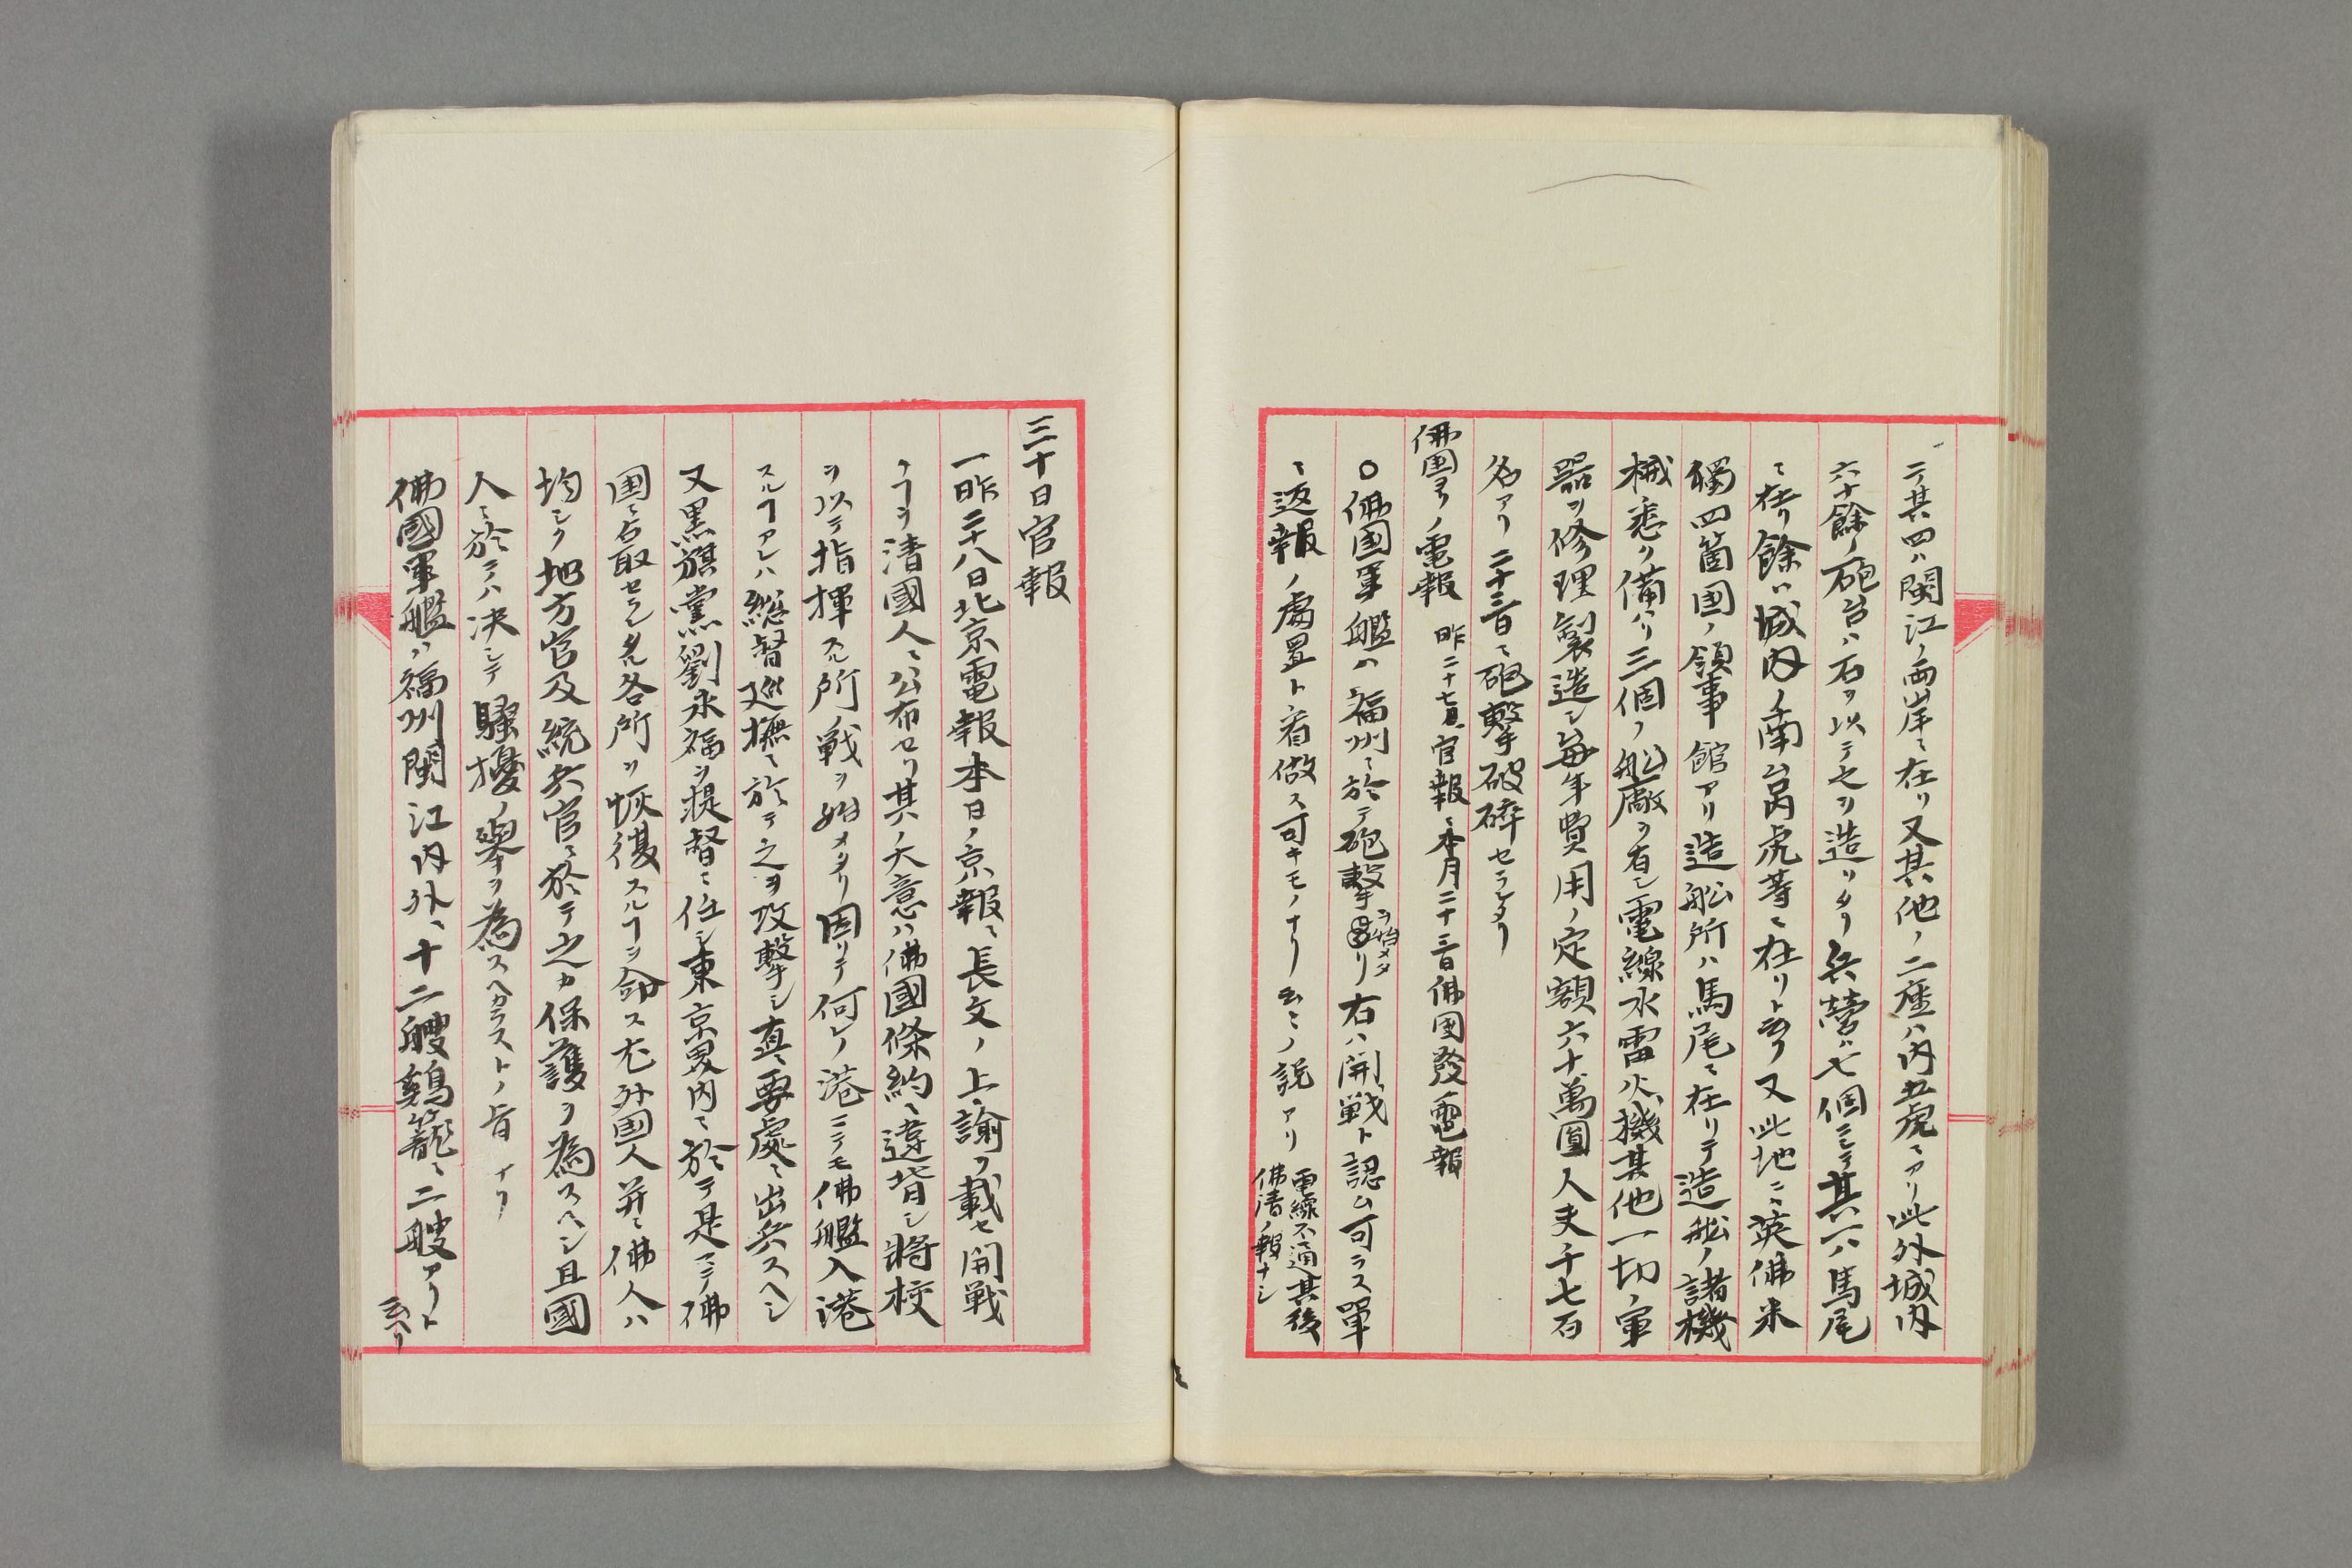 ニテ其四ハ閩江ノ両岸ニ在リ又其他ノ二座ハ内五虎ニアリ此外城内
六十餘ノ砲台ハ石ヲ以テセヲ造リタリ兵營ハ七個ニシテ其一ハ馬尾
ニ在リ餘ハ城内ノ南台芮虎等ニ在リト云フ又此地ニハ英佛米
獨四箇国ノ領事館アリ造舩所ハ馬尾ニ在リテ造舩ノ諸機
械悉ク備ハリ三個ノ舩廠ヲ有シ電線水雷火機其他一切ノ軍
器ヲ修理製造シ毎年費用ノ定額六十萬圓人夫千七百
名アリ二十三日ニ砲擊破碎セラレタリ
佛国ヨリノ電報 昨二十七日ノ官報ニ本月二十三日佛国發電報
〇佛国軍艦ハ福州ニ於テ砲擊ヲ始メタリ右ハ開戦ト認ム可ラス單
ニ返報ノ處置ト看做ス可キモノナリ云々ノ説アリ 電線不通其後
佛清ノ報ナシ
三十日官報
一昨二十八日北京電報本日ノ京報ニ長文ノ上諭ヲ載セ開戦
ノヿヲ清國人ニ公布セリ其ノ大意ハ佛國條約ニ違背シ將校
ヲ以テ指揮スル所戦ヲ始メタリ因リテ何レノ港ニテモ佛艦入港
スルヿアレハ總督巡撫ニ於テ之ヲ攻擊シ直ニ要處ニ出兵スヘシ
又黒旗黨劉永福ヲ提督ニ任シ東京界内ニ於テ是マテ佛
国ニ占取セラレタル各所ヲ恢復スルヿヲ命ス尤外国人并ニ佛人ハ
均シク地方官及統兵官ニ於テ之カ保護ヲ為スヘシ且國
人ニ於テハ决シテ騒擾ノ擧ヲ為スヘカラストノ旨ナリ
佛國軍艦ハ福州閩江内外ニ十二艘鷄籠ニ二艘アリト
云ヘリ